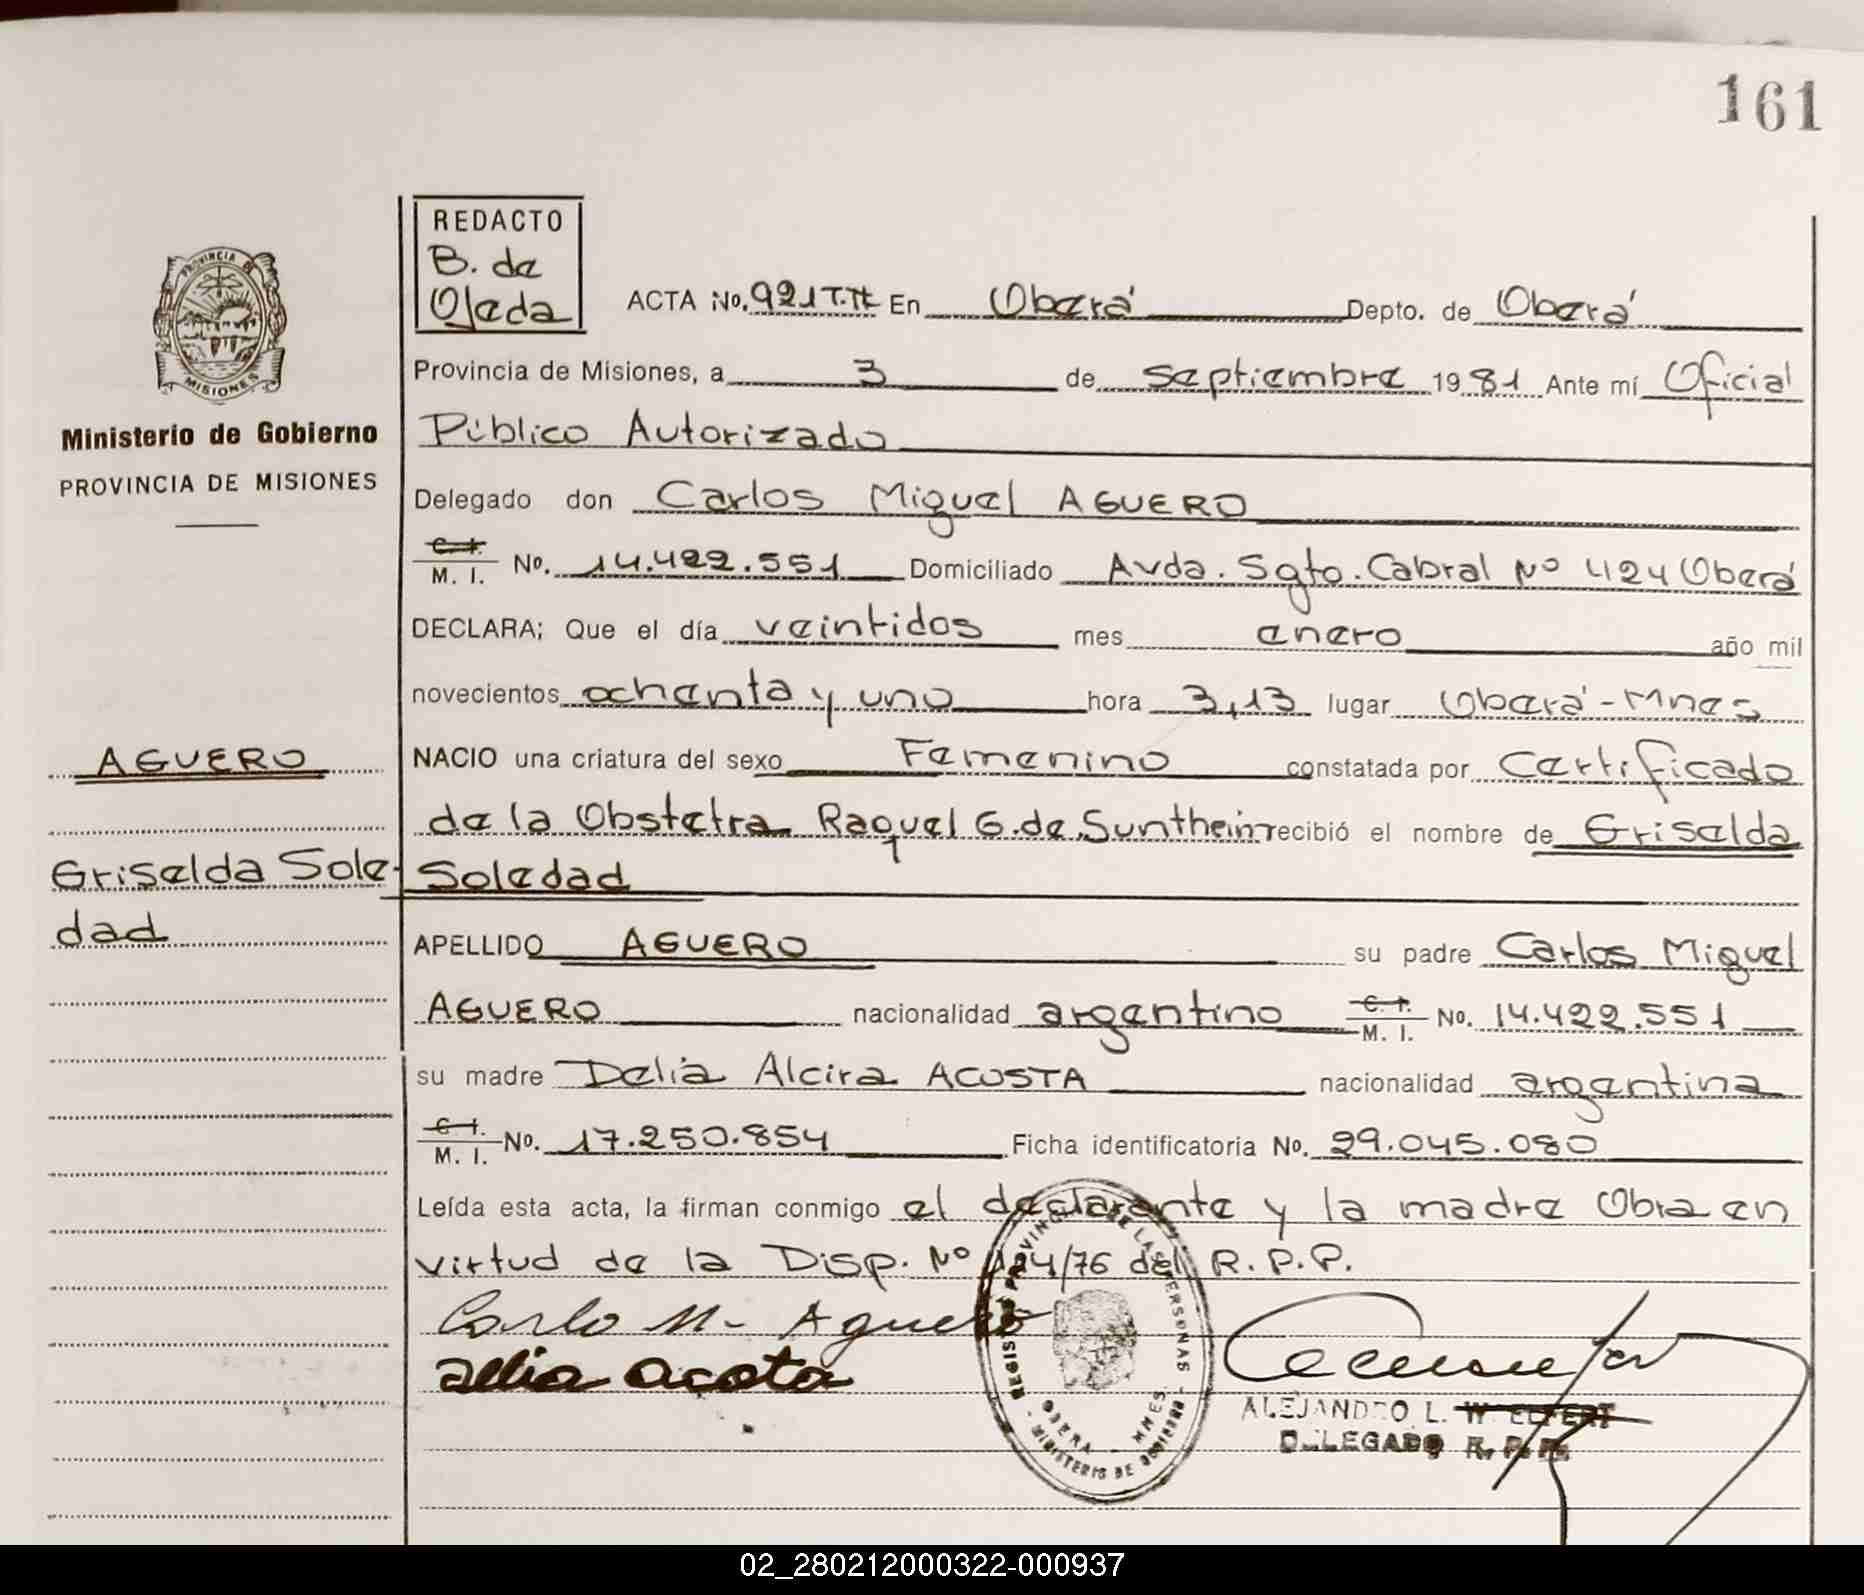 161
REDACTO
B. de
Ojeda
ACTA No. 921 T.II En Oberá Depto. de Oberá
Provincia de Misiones, a 3 de septiembre 1981 Ante mí Oficial
Público Autorizado
Delegado don Carlos Miguel AGUERO
C. I.
M. I. No. 14.422.551 Domiciliado Avda. Sgto. Cabral Nº 424 Oberá
DECLARA; Que el día veintidos mes enero año mil
novecientos ochenta y uno hora 3,13 lugar Oberá - Mnes
NACIO una criatura del sexo Femenino constatada por Certificado
de la Obstetra Raquel G. de Sunthein recibió el nombre de Griselda
Soledad
APELLIDO AGUERO su padre Carlos Miguel
AGUERO nacionalidad argentino C. I.
M. I. No. 14.422.551
su madre Delia Alcira ACOSTA nacionalidad argentina
C. I.
M. I. No. 17.250.854 Ficha identificatoria No. 29.045.080
Leída esta acta, la firman conmigo el declarante y la madre Obra en
virtud de la Disp. Nº 124/76 del R.P.P.
Carlo M. Aguero
Delia Acosta
REGISTRO PROVINCIAL DE LAS PERSONAS
OBERA - MNES.
MINISTERIO DE GOBIERNO
ALEJANDRO L.
DELEGADO R. P. P.
PROVINCIA DE
MISIONES
Ministerio de Gobierno
PROVINCIA DE MISIONES
AGUERO
Griselda Sole-
dad
02_280212000322-000937